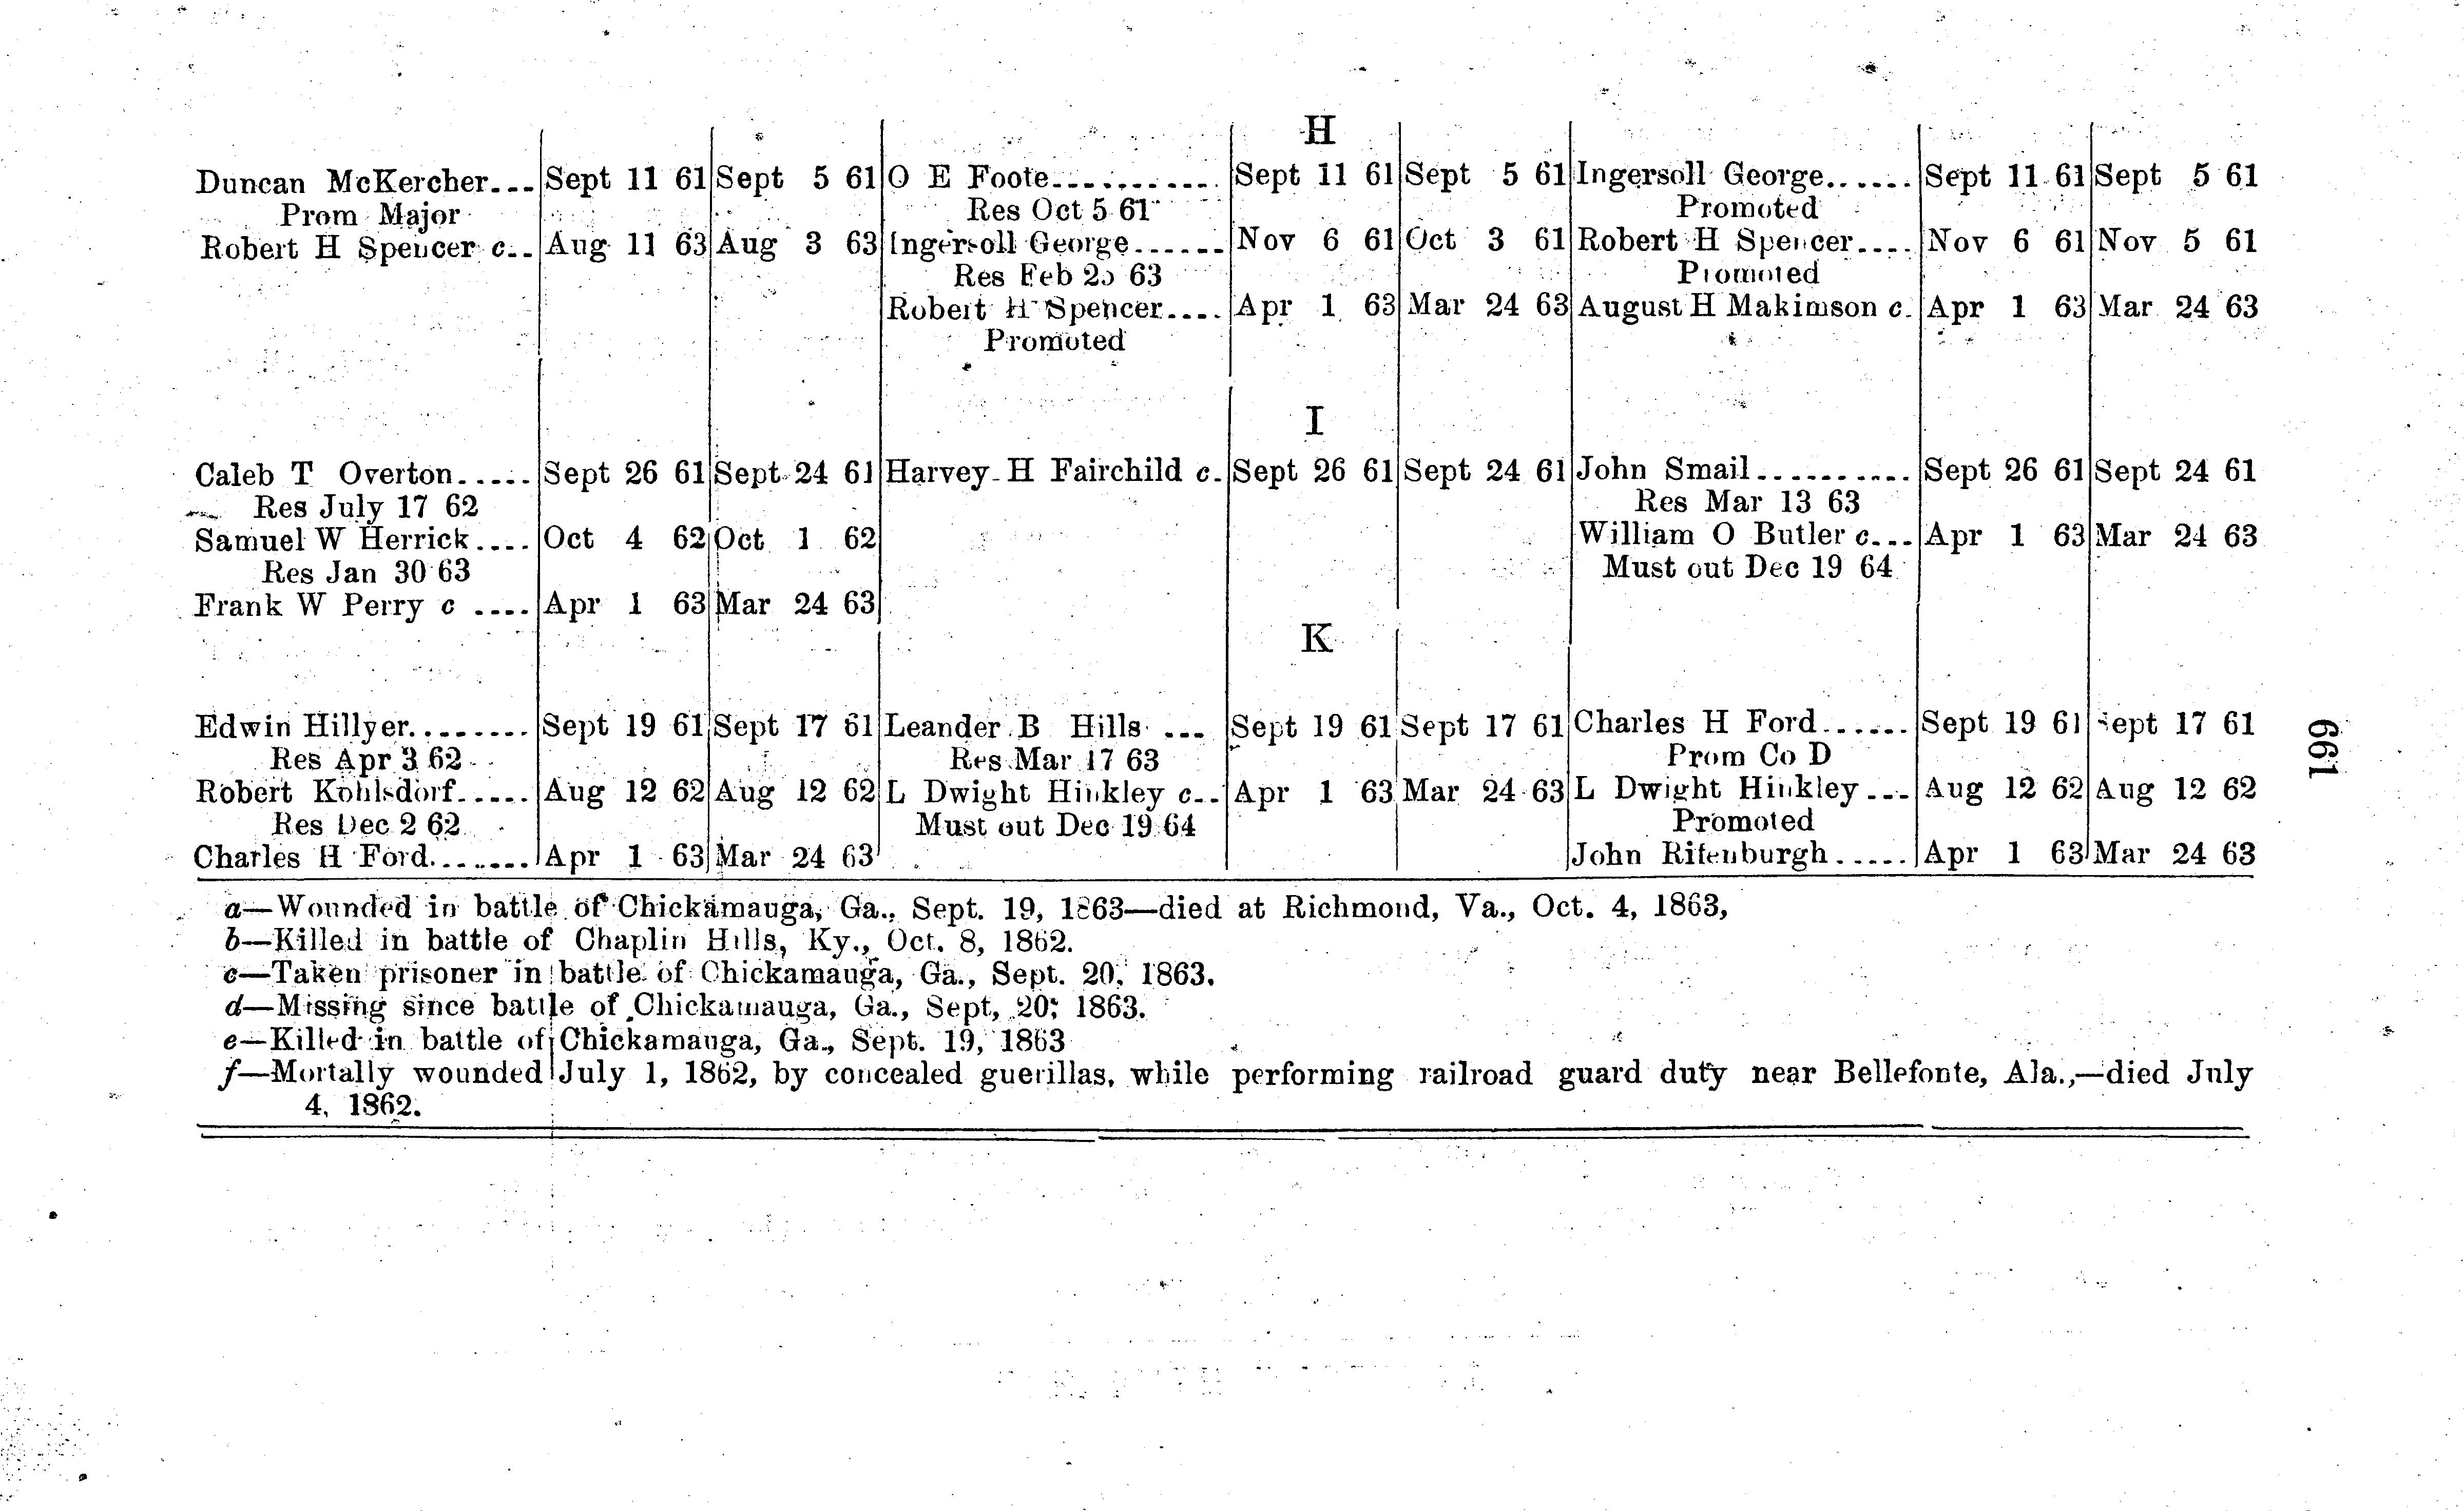 H
Duncan McKercher... Sept 11 61 Sept 5 61 O E Foote............ Sept 11 61 Sept 5 61 Ingersoll George...... Sept 11 61 Sept 5 61
Prom Major Res Oct 5 61 Promoted
Robert H Spencer c.. Aug 11 63 Aug 3 63 Ingersoll George...... Nov 6 61 Oct 3 61 Robert H Spencer.... Nov 6 61 Nov 5 61
Res Feb 25 63 Promoted
Robert H Spencer.... Apr 1 63 Mar 24 63 August H Makimson c. Apr 1 63 Mar 24 63
Promoted
I
Caleb T Overton..... Sept 26 61 Sept 24 61 Harvey H Fairchild c. Sept 26 61 Sept 24 61 John Smail.......... Sept 26 61 Sept 24 61
Res July 17 62 Res Mar 13 63
Samuel W Herrick.... Oct 4 62 Oct 1 62 William O Butler c... Apr 1 63 Mar 24 63
Res Jan 30 63 Must out Dec 19 64
Frank W Perry c .... Apr 1 63 Mar 24 63
K
Edwin Hillyer........ Sept 19 61 Sept 17 61 Leander B Hills ... Sept 19 61 Sept 17 61 Charles H Ford...... Sept 19 61 Sept 17 61
Res Apr 3 62 Res Mar 17 63 Prom Co D
Robert Kohlsdorf..... Aug 12 62 Aug 12 62 L Dwight Hinkley c.. Apr 1 63 Mar 24 63 L Dwight Hinkley... Aug 12 62 Aug 12 62
Res Dec 2 62 Must out Dec 19 64 Promoted
Charles H Ford....... Apr 1 63 Mar 24 63 John Ritenburgh..... Apr 1 63 Mar 24 63
a—Wounded in battle of Chickamauga, Ga., Sept. 19, 1863—died at Richmond, Va., Oct. 4, 1863,
b—Killed in battle of Chaplin Hills, Ky., Oct. 8, 1862.
c—Taken prisoner in battle of Chickamauga, Ga., Sept. 20, 1863.
d—Missing since battle of Chickamauga, Ga., Sept, 20, 1863.
e—Killed in battle of Chickamauga, Ga., Sept. 19, 1863
f—Mortally wounded July 1, 1862, by concealed guerillas, while performing railroad guard duty near Bellefonte, Ala.,—died July
4, 1862.
661